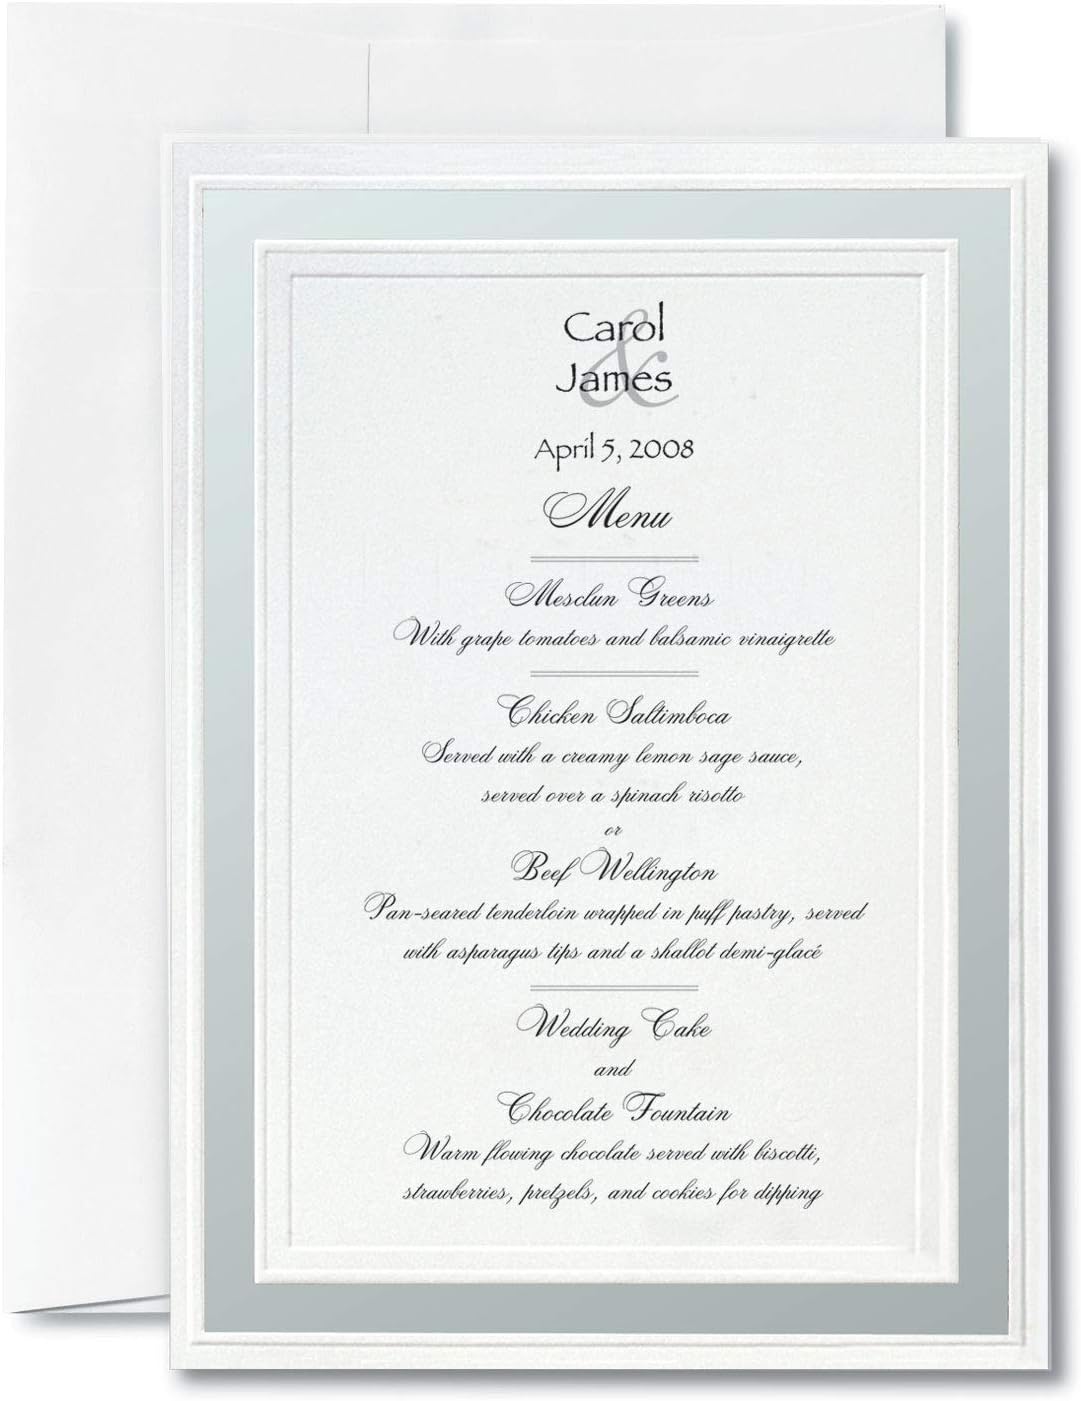 Carol
&
James
April 5, 2008
Menu
Mesclun Greens
With grape tomatoes and balsamic vinaigrette
Chicken Saltimboca
Served with a creamy lemon sage sauce,
served over a spinach risotto
or
Beef Wellington
Pan-seared tenderloin wrapped in puff pastry, served
with asparagus tips and a shallot demi-glacé
Wedding Cake
and
Chocolate Fountain
Warm flowing chocolate served with biscotti,
strawberries, pretzels, and cookies for dipping